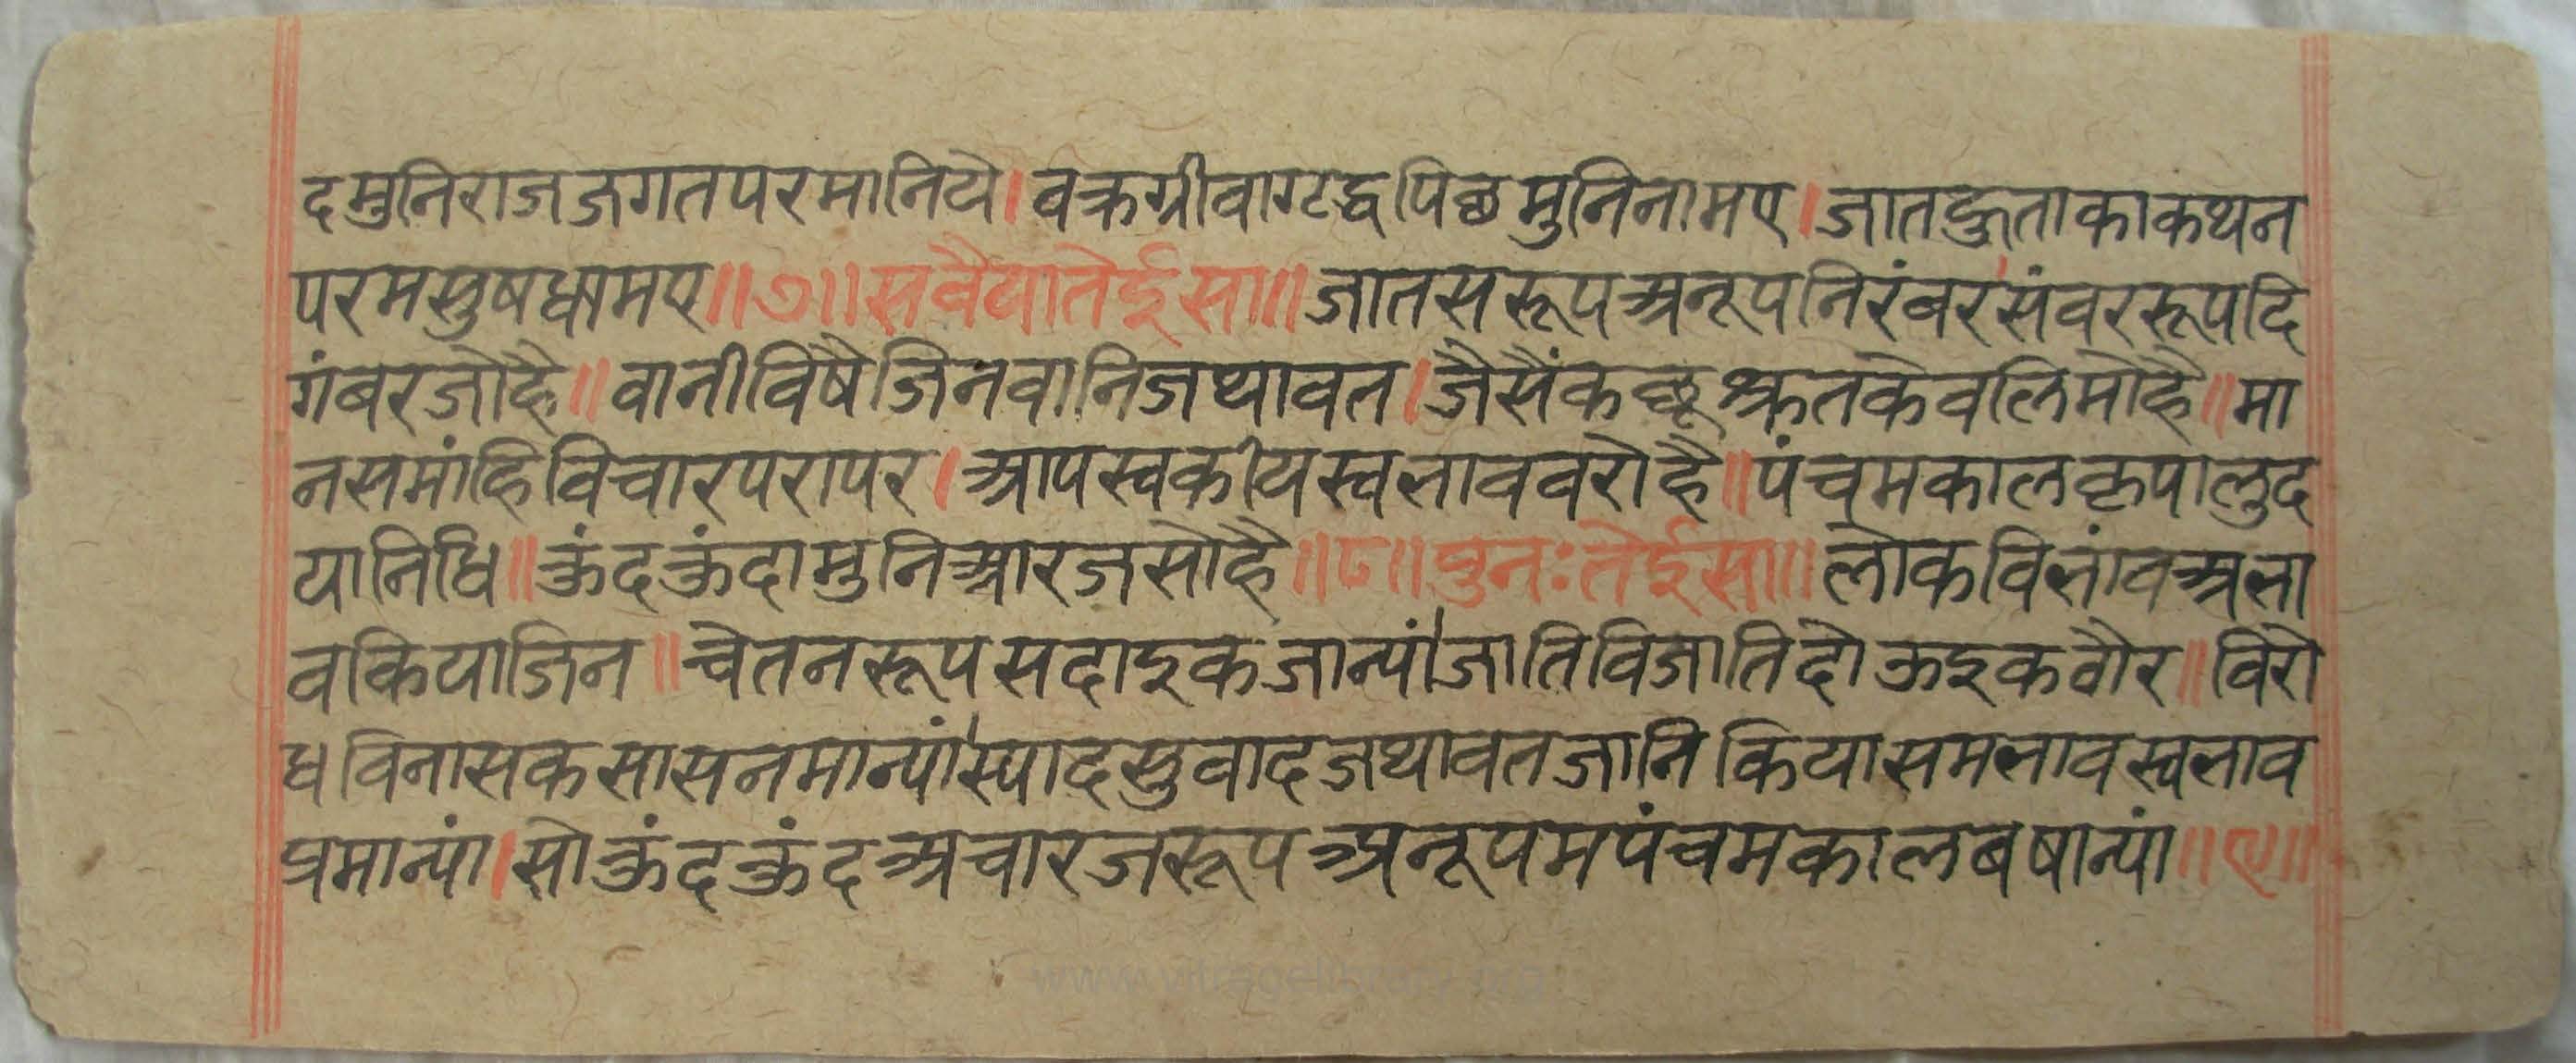 दमुनिराजजगतपरमानिये। वक्रग्रीवागृद्धपिछमुनिनामए। जातकुताकाकथन
परमसुषधामए॥७॥ सवैयातेईसा॥ जातसरूपअनूपनिरंबर'संवररूपदि
गंबरजोहै॥ वानीविषैजिनवानिजथावत। जैसैंकछूश्रुतकेवलिमोहै॥ मा
नसमांहिविचारपरापर। आपस्वकीयस्वभाववरोहै॥ पंचमकालकृपालुद
यानिधि॥ कुंदकुंदामुनिआरजसोहै॥८॥ पुनःतेईसा॥ लोकविभांवअभा
वकियाजिन॥ चेतनरूपसदाइकजान्यां।जातिविजातिदोऊइकवौर॥ विरो
धविनासकसासनमान्यां।स्यादसुवादजथावतजानिकियासमभावस्वभाव
प्रमान्यां। सोकुंदकुंदअचारजरूपअनूपमपंचमकालबषान्यां॥९॥
www.vitragelibrary.org